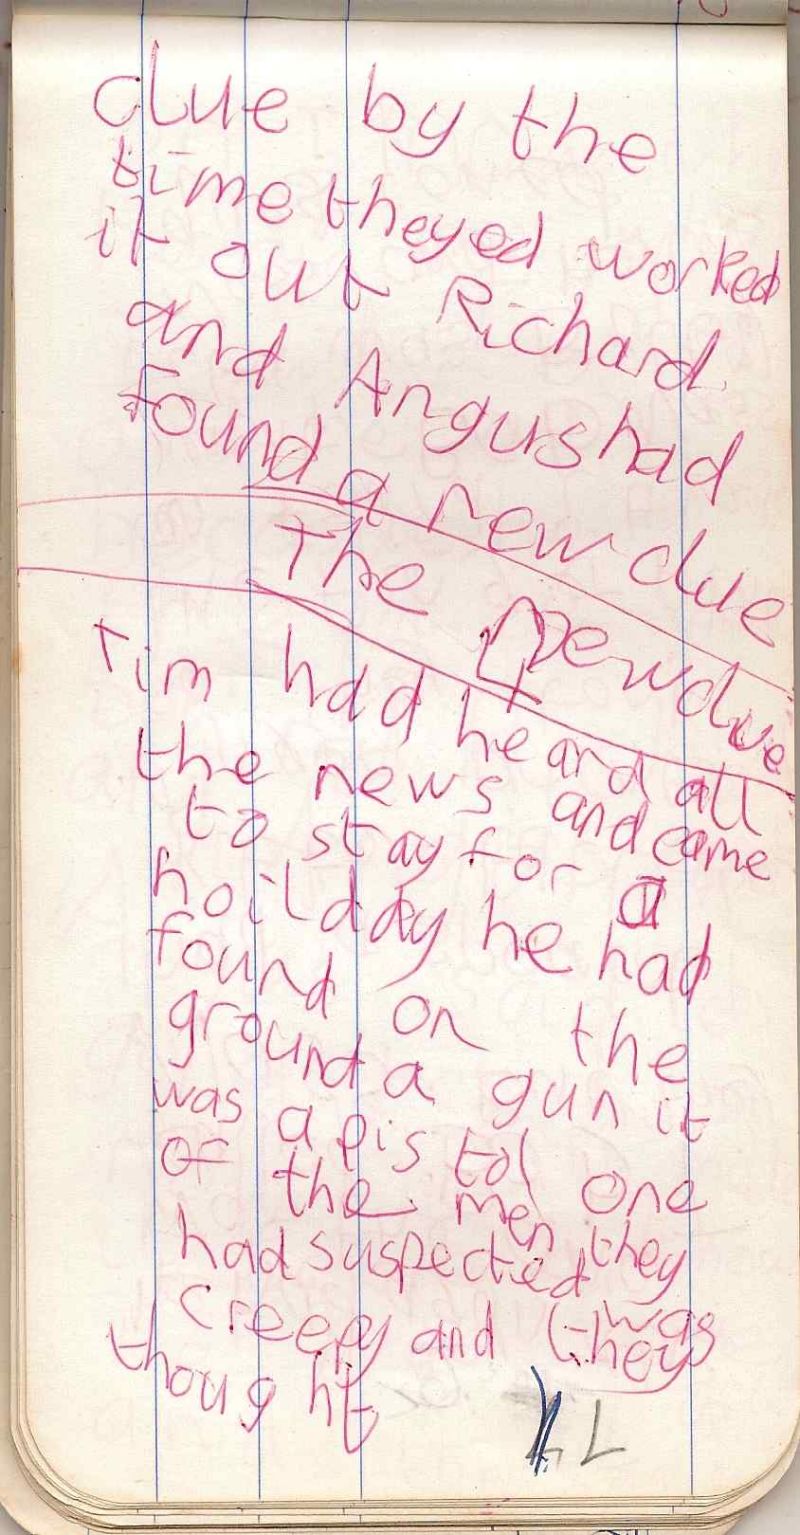 clue by the
time theyed worked
it out Richard
and Angus had
found a new clue
The New clue
Tim had heard all
the news and came
to stay for a
hoilday he had
found on the
ground a gun it
was a pistol one
of the men they
had suspected was
creepy and (they
thought